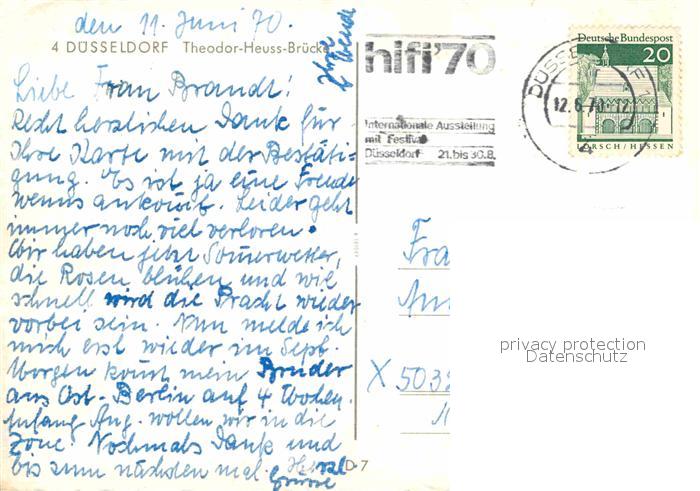 den 11. Juni 70.
4 DÜSSELDORF Theodor-Heuss-Brücke
Liebe Frau Brandt!
Recht herzlichen Dank für
Ihre Karte mit der Bestäti-
gung. Es ist ja eine Freude
wenns ankommt. Leider geht
immer noch viel verloren.
Wir haben jetzt Sommerwetter,
die Rosen blühen und wie
schnell wird die Pracht wieder
vorbei sein. Nun melde ich
mich erst wieder im Sept.
Morgen kommt mein Bruder
aus Ost-Berlin auf 4 Wochen.
Anfang Aug. wollen wir in die
Zone. Nochmals Dank und
bis zum nächsten mal. Herzl
Grüsse
Ihre
D-7
hifi'70
Internationale Ausstellung
mit Festival
Düsseldorf 21. bis 30.8.
Deutsche Bundespost
20
LORSCH/HESSEN
DÜSSELDORF 1
12.6.70-12
4
Fra
Am
X 503
privacy protection
Datenschutz